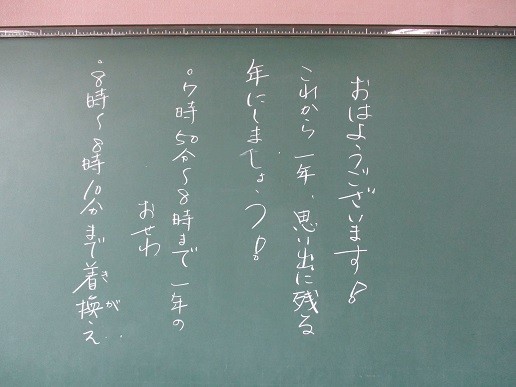 おはようございます!
これから一年、思い出に残る
年にしましょう!
・7時50分〜8時まで一年の
おせわ
・8時〜8時10分まで着換え…
きが